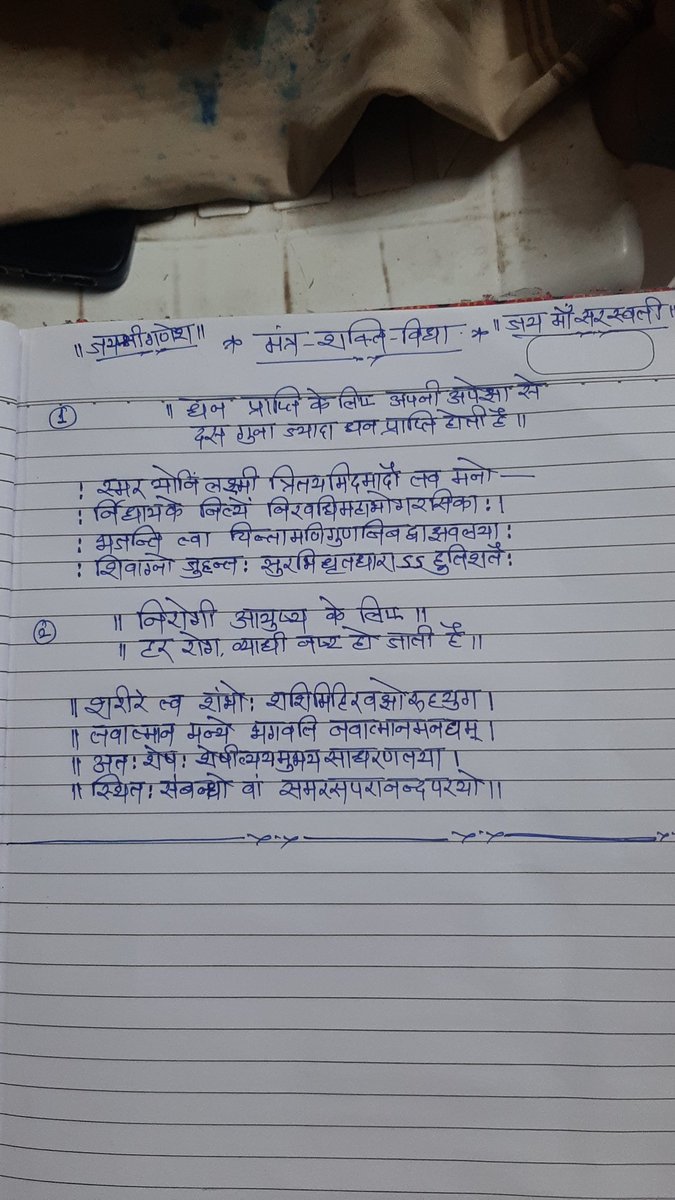 ॥ जय श्री गणेश ॥ * मंत्र-शक्ति-विधा * ॥ जय माँ सरस्वती ॥
① ॥ धन प्राप्ति के लिए अपनी अपेक्षा से
दस गुना ज्यादा धन प्राप्ति होती है ॥
: स्मर योनिं लक्ष्मी त्रितयमिदमादौ तव मनो —
: र्निधायके नित्ये निरवधिमहाभोगरसिका: ।
: भजन्ति त्वा चिन्तामणिगुणनिबद्वाक्षवलया :
: शिवाग्नो जुहन्त: सुरभिघृतधाराऽऽहुतिशतै:
② ॥ निरोगी आयुष्य के लिए ॥
॥ हर रोग, व्याधी नष्ट हो जाती है ॥
॥ शरीरे त्व शंभो: शशिमिहिरवक्षोरुहयुग ।
॥ तवात्मान मन्ये भगवति नवात्मानमनघम् ।
॥ अत: शेष: शेषीत्ययमुभयसाधरणतया ।
॥ स्थित: संबन्धो वां समरसपरानन्दपरयो ॥